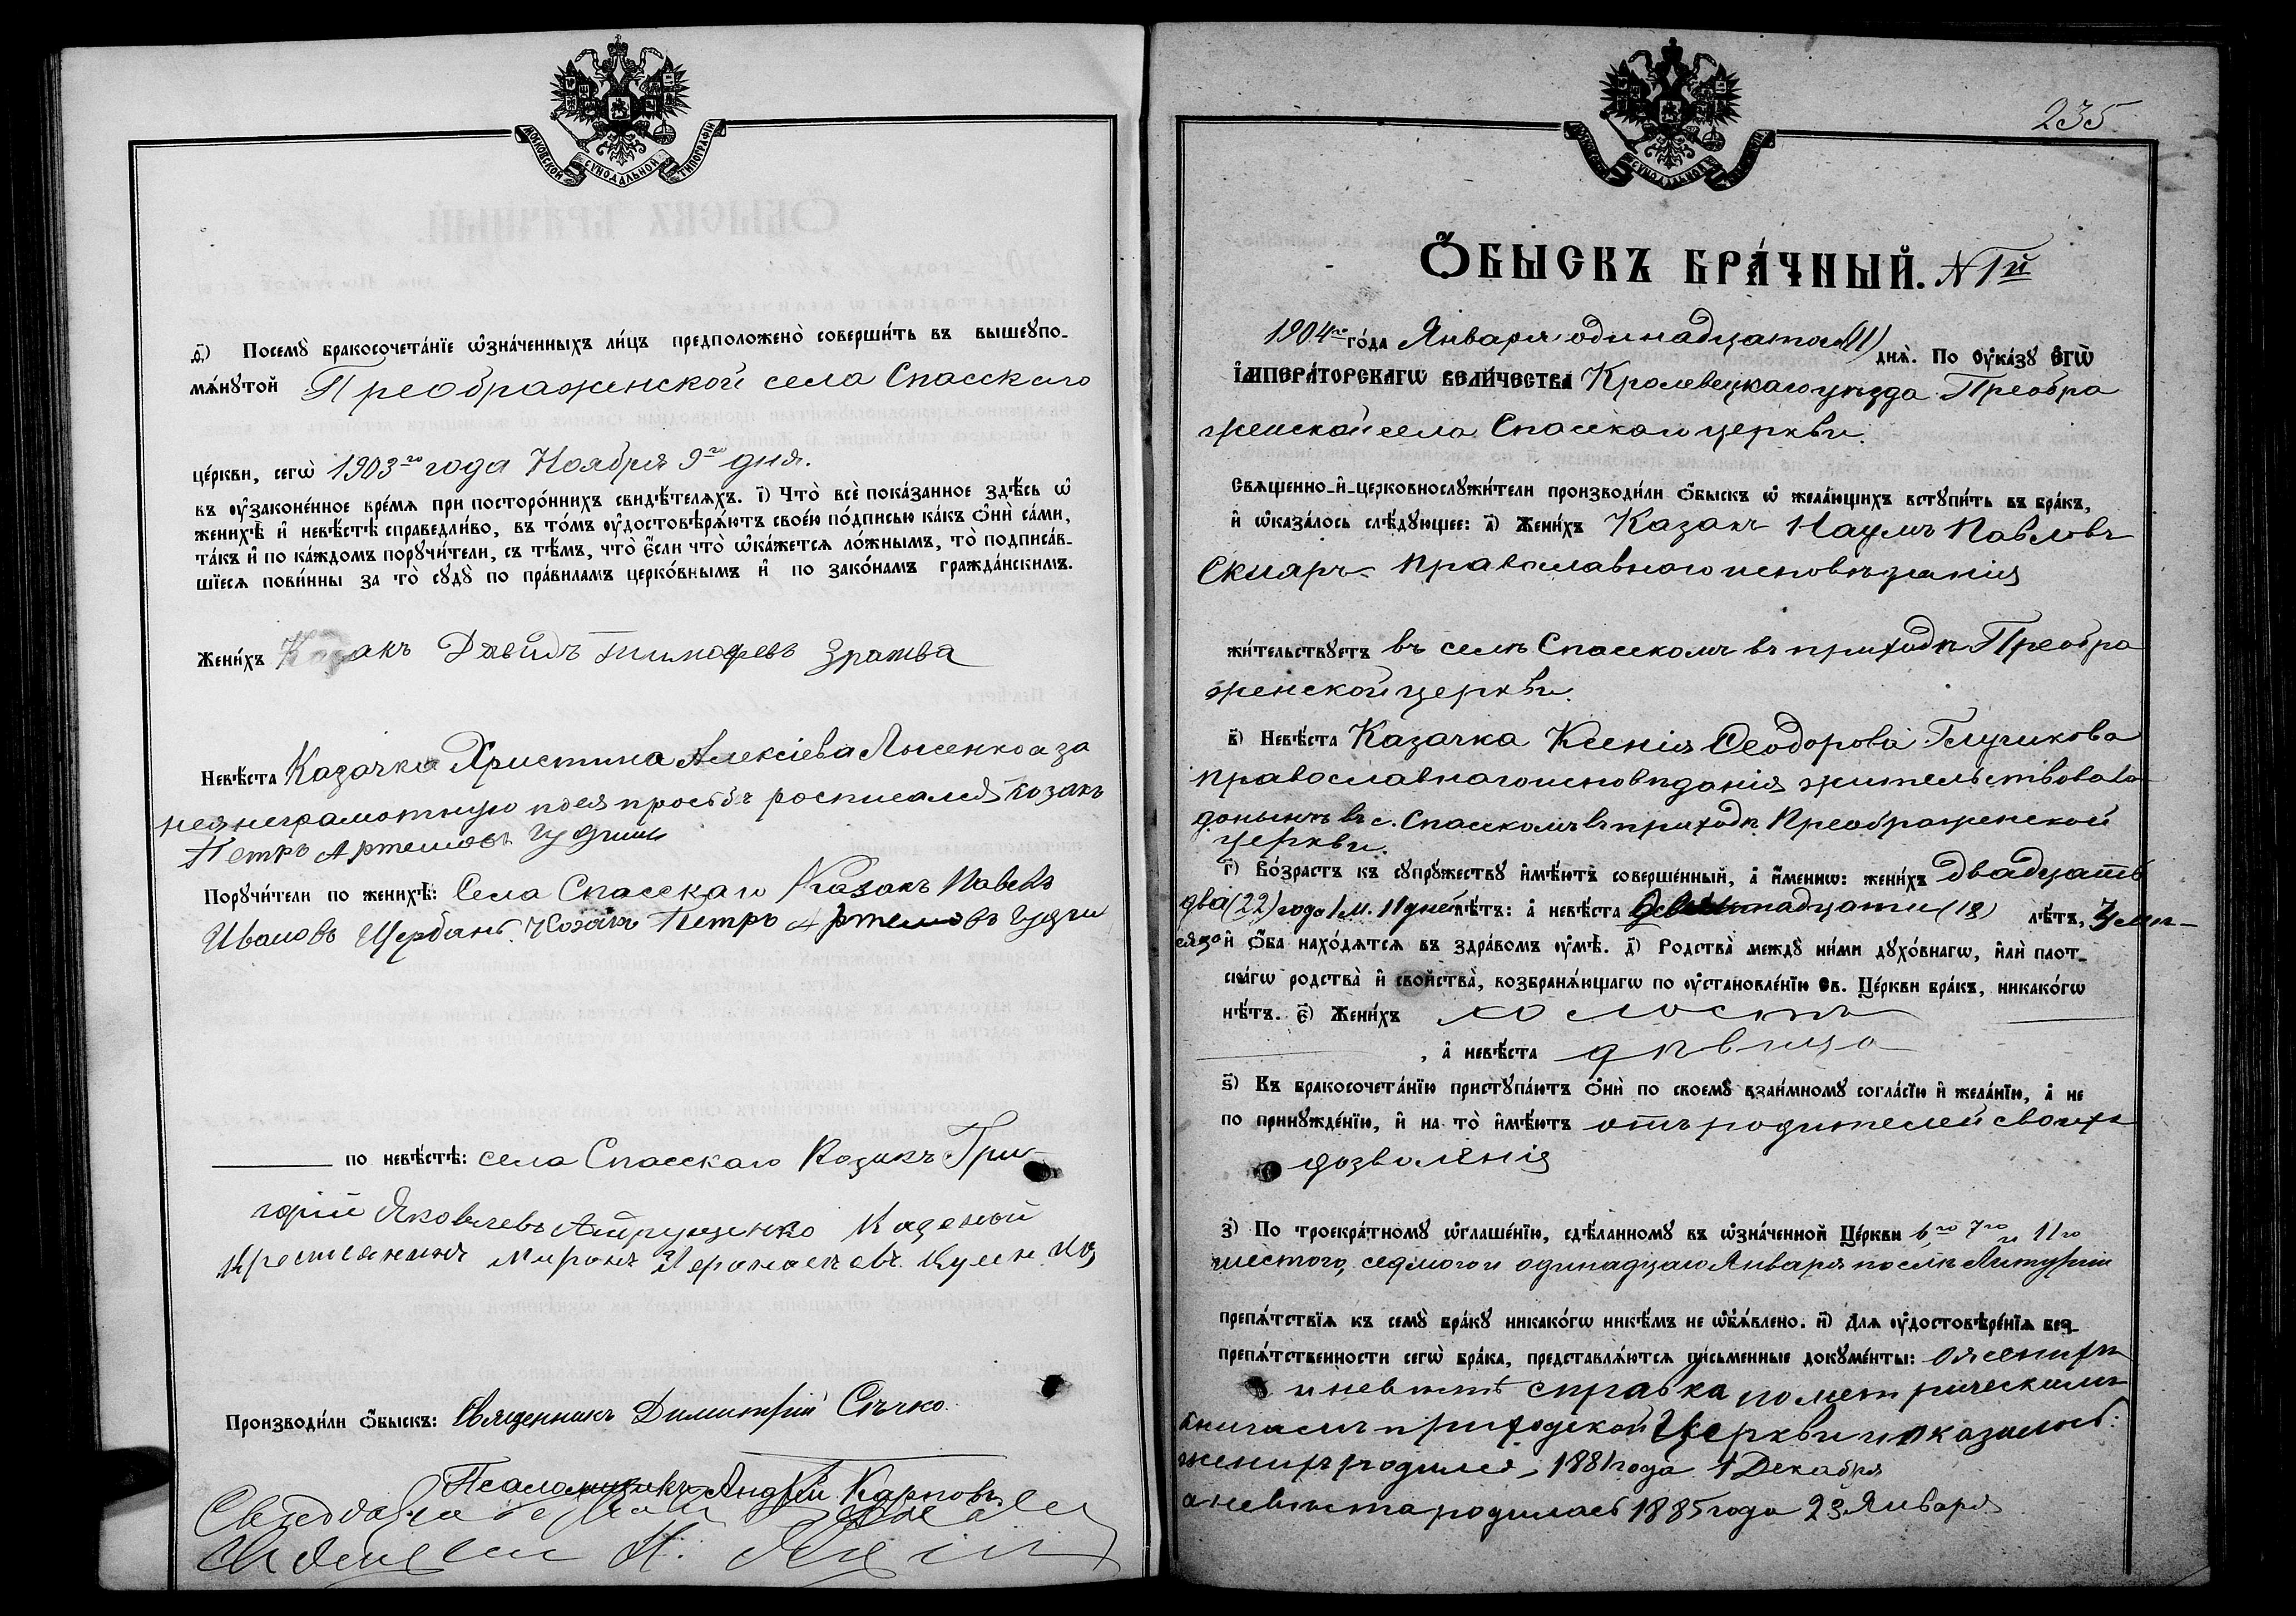 МОСКОВСКОЙ СѴНОДАЛЬНОЙ ТИПОГРАФІИ
д҃) Посемꙋ̀ бракосочета́нїе ѡ҆зна́ченныхъ ли́цъ предположено̀ соверши́ть въ вышеꙋпо-
мѧ́нꙋтой Преображенской села Спасскаго
це́ркви, сегѡ̀ 1903го года Ноября 9го дня.
въ ᲂу҆зако́ненное вре́мѧ при посторо́ннихъ свидѣ́телѧхъ. і҃) Что̀ всѐ пока́занное здѣ́сь ѡ҆
женихѣ̀ и҆ невѣ́стѣ справедли́во, въ то́мъ ᲂу҆достовѣрѧ́ютъ свое́ю по́дписью ка́къ ѻ҆нѝ са́ми,
та́къ и҆ по ка́ждомъ порꙋчи́тели, съ тѣ́мъ, что̀ є҆́сли что̀ ѡ҆ка́жетсѧ ло́жнымъ, то̀ подписа́в-
шїесѧ пови́нны за то̀ сꙋдꙋ̀ по пра́виламъ церко́внымъ и҆ по зако́намъ гражда́нскимъ.
Жени́хъ Казакъ Давидъ Тимофеевъ
Невѣ́ста Казачка Христина Алексіева Лысенко а за
нея неграмотную по ея просьбѣ росписался козакъ
Петръ Артемовъ
Порꙋчи́тели по женихѣ̀: Села Спасскаго Казакъ Павелъ
Ивановъ Щербакъ. Козакъ Петръ Артемовъ
по невѣ́стѣ: села Спасскаго Козакъ Гри-
горій Яковлевъ
Крестьянинъ Миронъ
Производи́ли ѻ҆́быскъ: Священникъ Димитрій Сѣчко
Псаломщикъ Андрій Карповъ
МОСКОВСКОЙ СѴНОДАЛЬНОЙ ТИПОГРАФІИ
235
Ѻ҆́БЫСКЪ БРА́ЧНЫЙ. N 1й
1904го го́да Января одинадцатого (11) днѧ̀. По ᲂу҆ка́зꙋ Є҆гѡ̀
І҆мпера́торскагѡ Вели́чества Кролевецкаго уѣзда Преобра
женской села Спасскаго церкви.
Свѧще́нно-и҆-церковнослꙋжи́тели производи́ли ѻ҆́быскъ ѡ҆ жела́ющихъ встꙋпи́ть въ бра́къ,
и҆ ѡ҆каза́лось слѣ́дꙋющее: а҃) Жени́хъ Казакъ Наумъ Павловъ
Скляръ Православнаго исповѣданія
жи́тельствꙋетъ въ селѣ Спасскомъ въ приходѣ Преобра
женской церкви.
в҃) Невѣ́ста Казачка Ксенія Ѳеодорова
православнаго исповѣданія жительствовала
донынѣ въ с. Спасскомъ въ приходѣ Преображенской
церкви.
г҃) Во́зрастъ къ сꙋпрꙋ́жествꙋ и҆мѣ́ютъ соверше́нный, а҆ и҆́меннѡ: жени́хъ двадцать
два (22) года 1 м. 11 дней лѣ́тъ: а҆ невѣ́ста (18) лѣ́тъ,
и҆ ѻ҆́ба нахо́дѧтсѧ въ здра́вомъ ᲂу҆мѣ̀. д҃) Родства̀ междꙋ̀ ни́ми дꙋхо́внагѡ, и҆лѝ плот-
ска́гѡ родства̀ и҆ сво́йства, возбранѧ́ющагѡ по ᲂу҆становле́нїю Св. Це́ркви бра́къ, никако́гѡ
нѣ́тъ. є҃) Жени́хъ холостъ
, а҆ невѣ́ста дѣвица
ѕ҃) Къ бракосочета́нїю пристꙋпа́ютъ ѻ҆нѝ по своемꙋ̀ взаи́мномꙋ согла́сїю и҆ жела́нїю, а҆ не
по принꙋжде́нїю, и҆ на то̀ и҆мѣ́ютъ отъ родителей своихъ
дозволенія
з҃) По троекра́тномꙋ ѡ҆глаше́нїю, сдѣ́ланномꙋ въ ѡ҆зна́ченной Це́ркви 6го 7го и 11го
шестого, седмого и одинадцаго Января послѣ Литургіи
препѧ́тствїѧ къ семꙋ̀ бра́кꙋ никако́гѡ никѣ́мъ не ѡ҆б̾ѧ́влено. и҃) Длѧ ᲂу҆достовѣре́нїѧ без-
препѧ́тственности сегѡ̀ бра́ка, представлѧ́ютсѧ пи́сьменные докꙋме́нты: О женихѣ
и невѣстѣ справка по метрическимъ
книгамъ приходской Церкви и оказалось:
женихъ родился, 1881 года 1 Декабря
а невѣста родилась 1885 года 23 Января